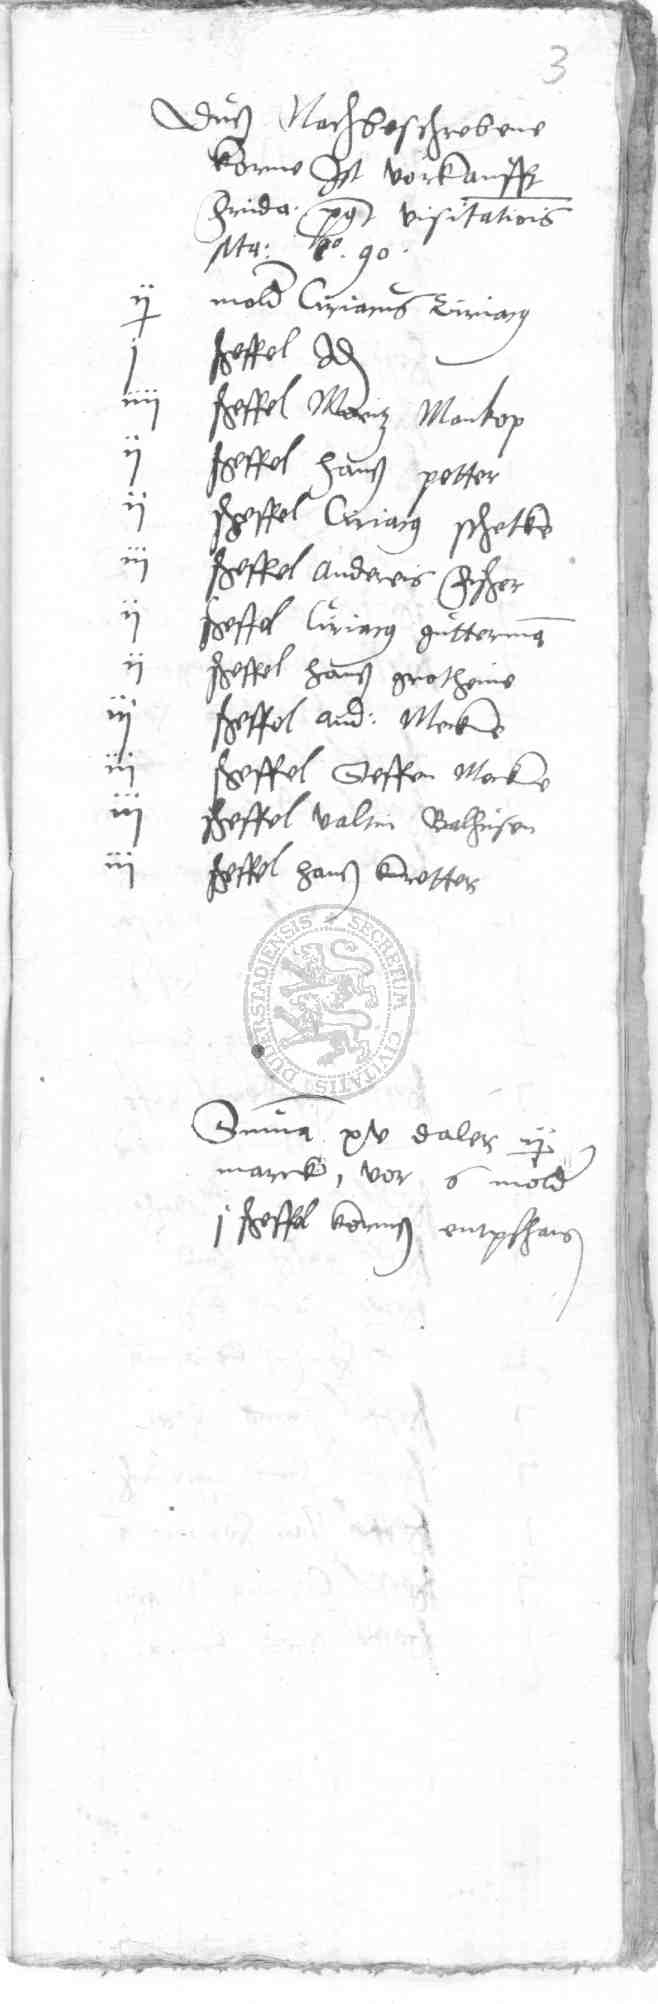 3
Duß Nachbeschrebene
korne Ist vorkaufft
Frida: post visitationis
Ma: ao. 90.
ij mold Ciriacus
j scheffel Id
iiij scheffel Moritz Monkop
ij scheffel Hanß petter
ij scheffel Ciriacg schotke
iij scheffel Andereis Fisher
ij scheffel Ciriacg gütterma
ij scheffel Hanß grotheine
iij scheffel And: Mecke
iij scheffel Steffen Mecke
iij scheffel Valtin Balhusen
iij scheffel Hanß knetter
SECRETUM CIVITATIS DUDERSTADIENSIS
Suma xv daler ij
marck, vor 6 mold
j scheffel korns entpfhan